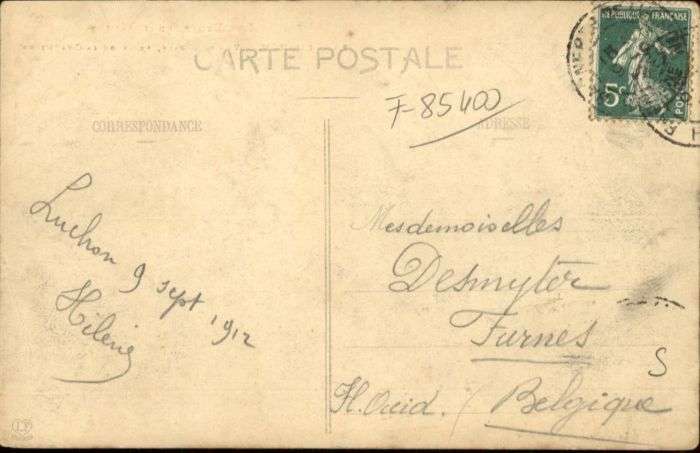 CARTE POSTALE
F-85400
CORRESPONDANCE
ADRESSE
REPUBLIQUE FRANÇAISE
5c
POSTES
Luchon 9 sept 1912
Hélène
Mesdemoiselles
Desmyter
Furnes
Fl. Occid. / Belgique
S